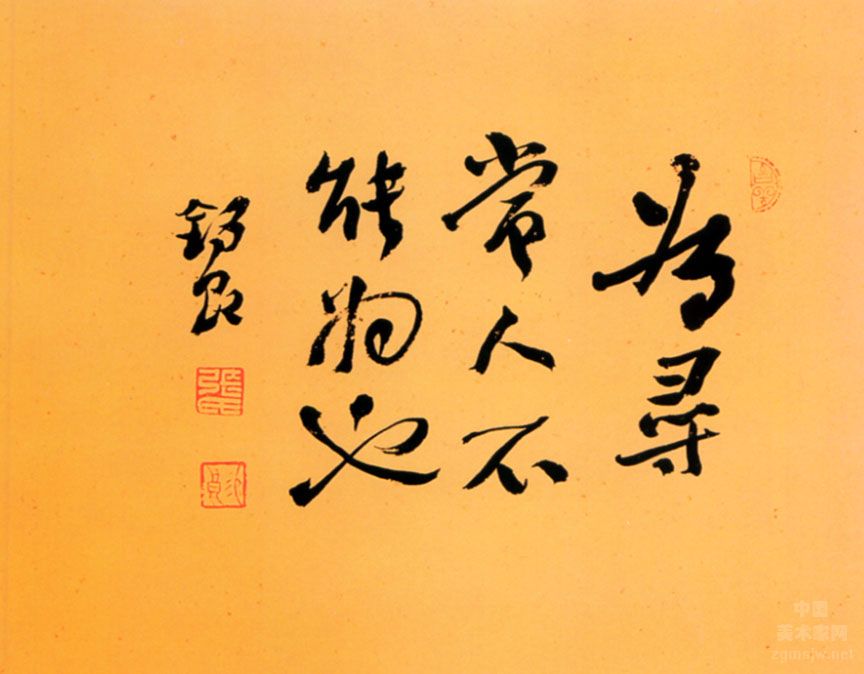 为尋
常人不
能为也
錫良
中国
美术家网
zgmsjw.net